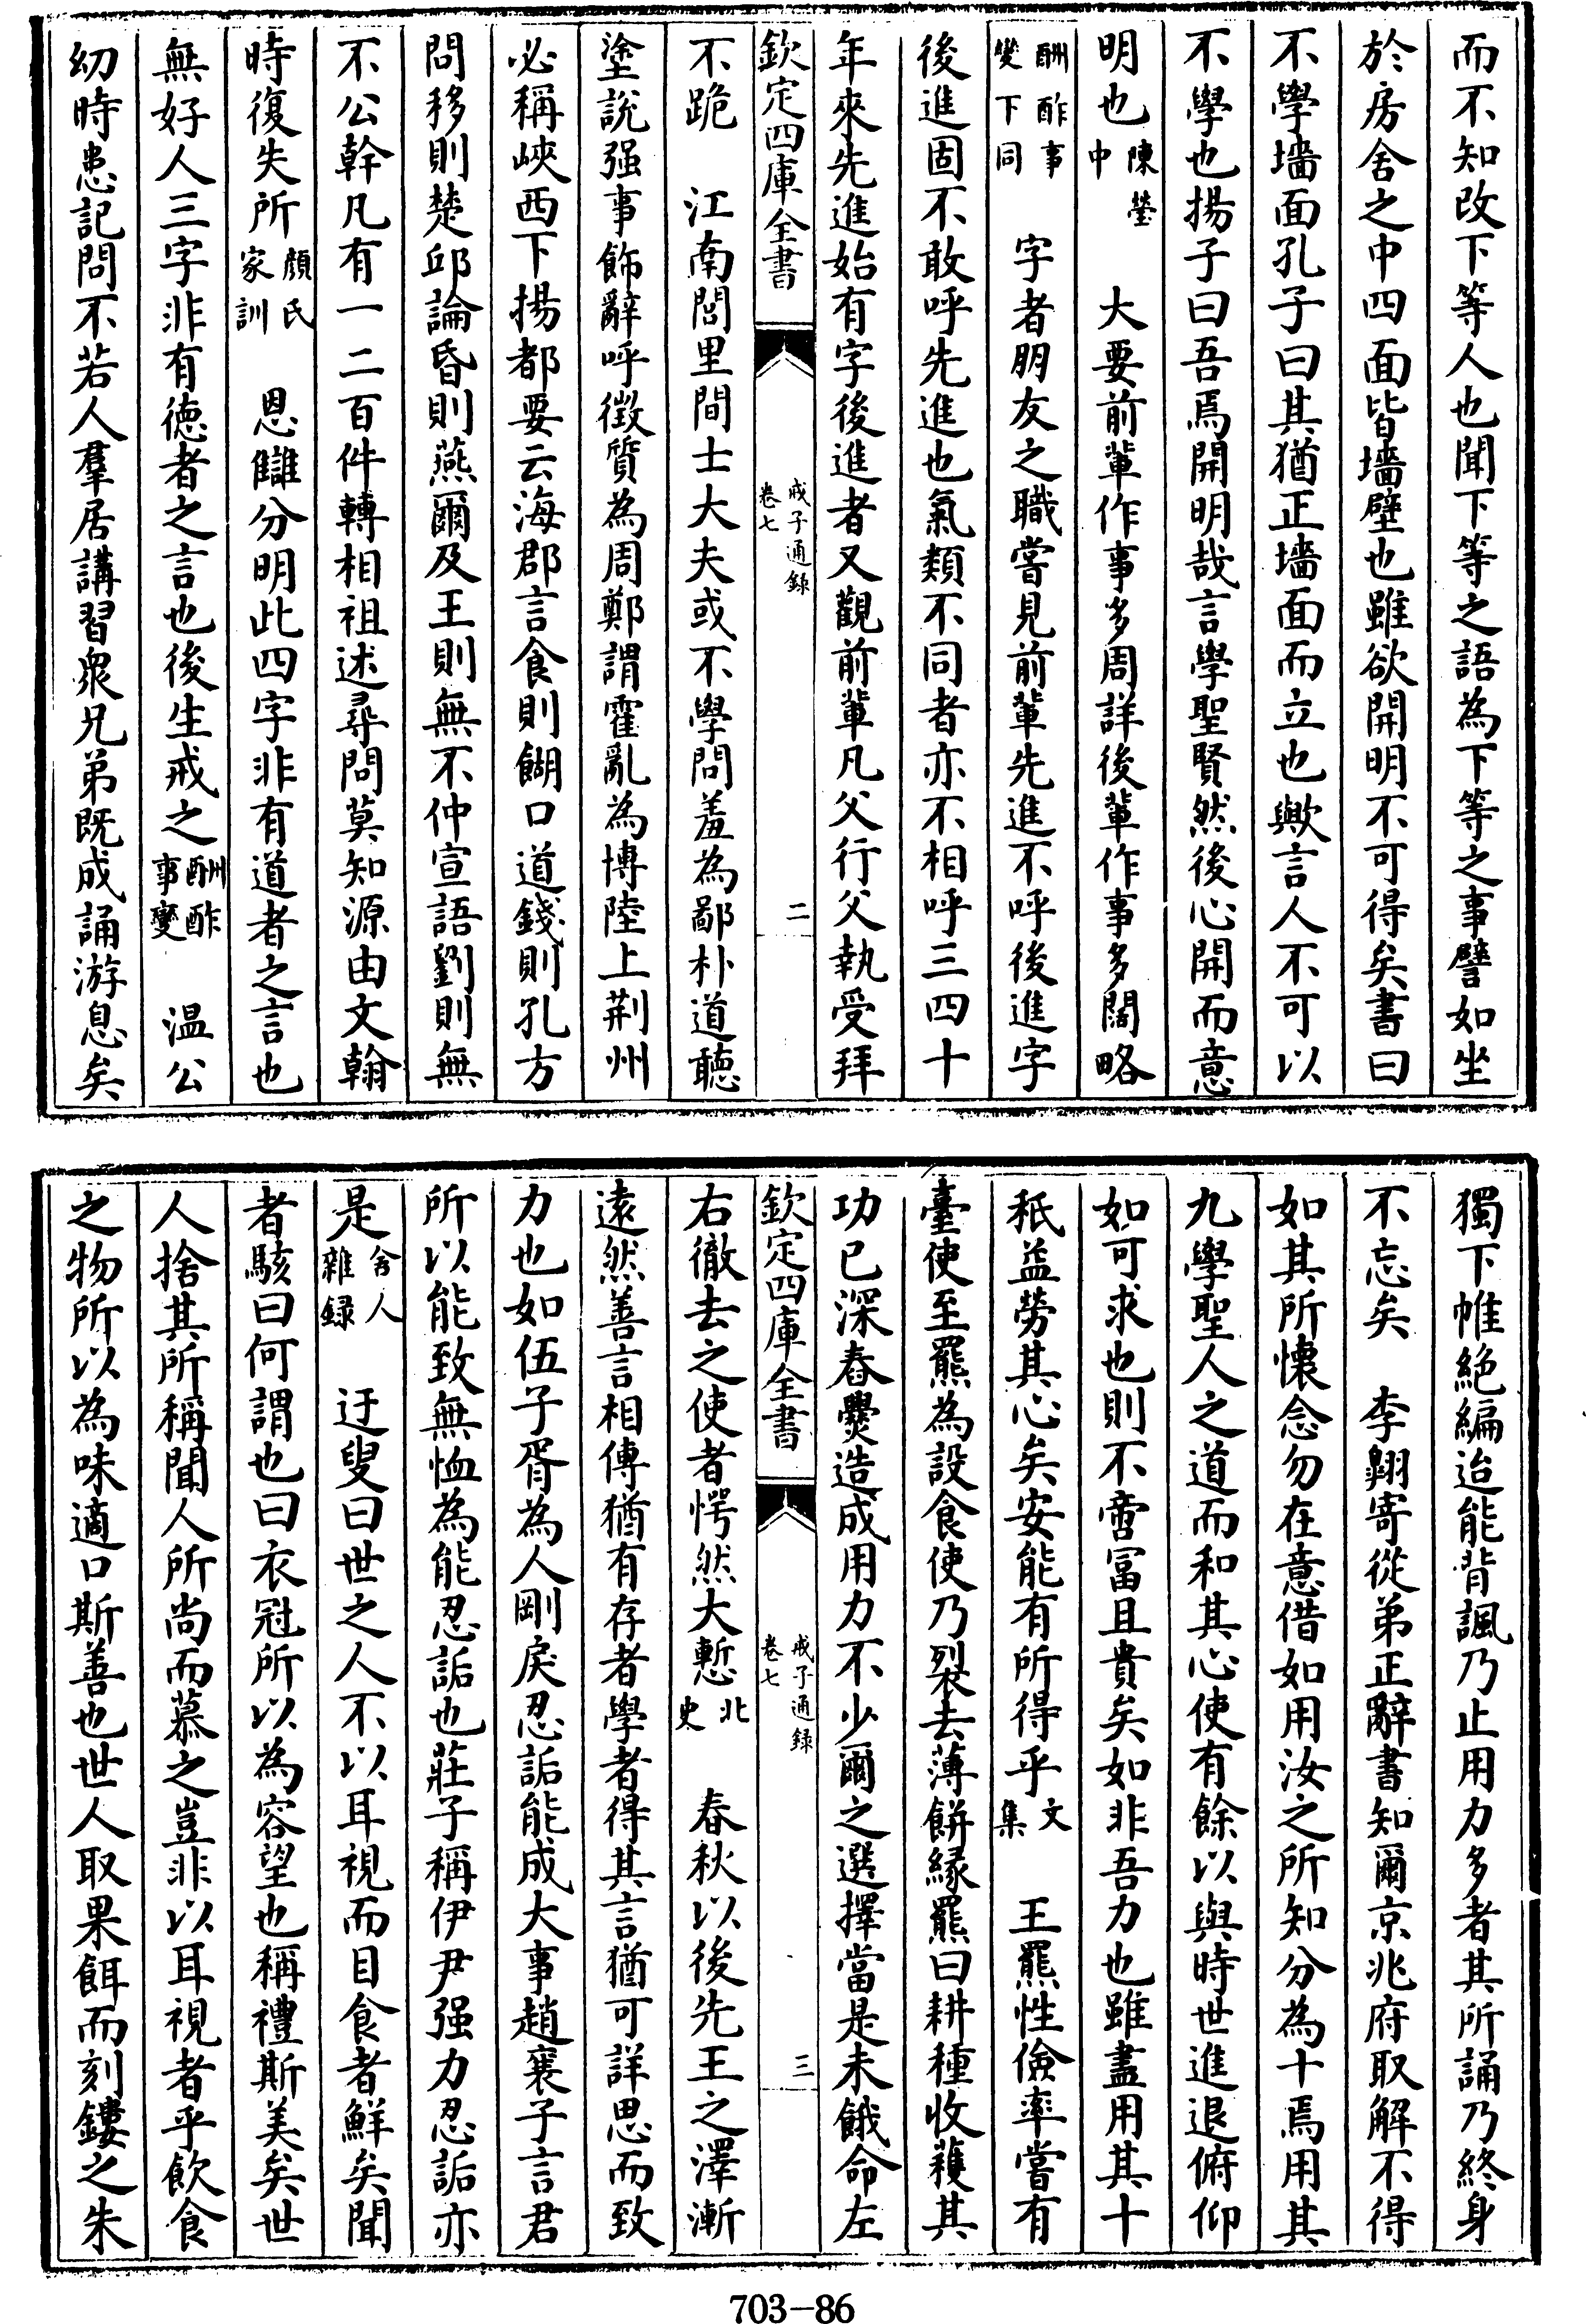 而不知改下等人也聞下等之語為下等之事譬如坐
於房舍之中四面皆墻壁也雖欲開明不可得矣書曰
不學墻面孔子曰其猶正墻面而立也歟言人不可以
不學也揚子曰吾焉開明哉言學聖賢然後心開而意
明也陳瑩中 大要前輩作事多周詳後輩作事多闊略
酬酢事變下同 字者朋友之職嘗見前輩先進不呼後進字
後進固不敢呼先進也氣類不同者亦不相呼三四十
年來先進始有字後進者又觀前輩凡父行父執受拜
欽定四庫全書 戒子通錄 卷七 二
不跪 江南閭里間士大夫或不學問羞為鄙朴道聽
塗說强事飾辭呼徵質為周鄭謂霍亂為博陸上荆州
必稱峽西下揚都要云海郡言食則餬口道錢則孔方
問移則楚邱論昏則燕爾及王則無不仲宣語劉則無
不公幹凡有一二百件轉相祖述尋問莫知源由文翰
時復失所顔氏家訓 恩讎分明此四字非有道者之言也
無好人三字非有徳者之言也後生戒之酬酢事變 温公
幼時患記問不若人羣居講習衆兄弟既成誦游息矣
獨下帷絶編迨能背諷乃止用力多者其所誦乃終身
不忘矣 李翺寄從弟正辭書知爾京兆府取解不得
如其所懐念勿在意借如用汝之所知分為十焉用其
九學聖人之道而和其心使有餘以與時世進退俯仰
如可求也則不啻富且貴矣如非吾力也雖盡用其十
秖益勞其心矣安能有所得乎文集 王羆性儉率嘗有
臺使至羆為設食使乃裂去薄餅緣羆曰耕種收穫其
功已深舂爨造成用力不少爾之選擇當是未餓命左
欽定四庫全書 戒子通錄 卷七 三
右徹去之使者愕然大慙北史 春秋以後先王之澤漸
遠然善言相傳猶有存者學者得其言猶可詳思而致
力也如伍子胥為人剛戾忍詬能成大事趙襄子言君
所以能致無恤為能忍詬也莊子稱伊尹强力忍詬亦
是舍人雜録 迂叟曰世之人不以耳視而目食者鮮矣聞
者駭曰何謂也曰衣冠所以為容望也稱禮斯美矣世
人捨其所稱聞人所尚而慕之豈非以耳視者乎飲食
之物所以為味適口斯善也世人取果餌而刻鏤之朱
703-86